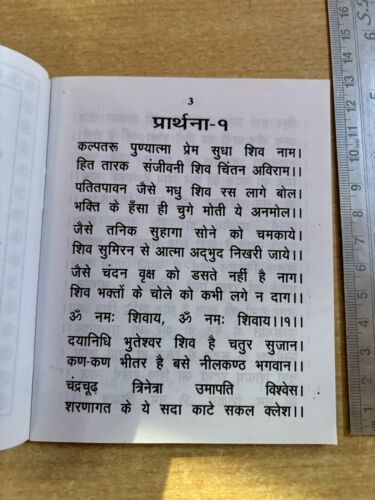 3
प्रार्थना-१
कल्पतरू पुण्यात्मा प्रेम सुधा शिव नाम।
हित तारक संजीवनी शिव चिंतन अविराम।।
पतितपावन जैसे मधु शिव रस लागे बोल।
भक्ति के हँसा ही चुगे मोती ये अनमोल।।
जैसे तनिक सुहागा सोने को चमकाये।
शिव सुमिरन से आत्मा अद्भुद निखरी जाये।।
जैसे चंदन वृक्ष को डसते नहीं है नाग।
शिव भक्तों के चोले को कभी लगे न दाग।।
ॐ नमः शिवाय, ॐ नमः शिवाय।।१।।
दयानिधि भुतेश्वर शिव है चतुर सुजान।
कण-कण भीतर है बसे नीलकण्ठ भगवान।।
चंद्रचूढ़ त्रिनेत्रा उमापति विश्वेस।
शरणागत के ये सदा काटे सकल क्लेश।।
16
15
14
13
12
11
10
9
8
7
6
5
4
3